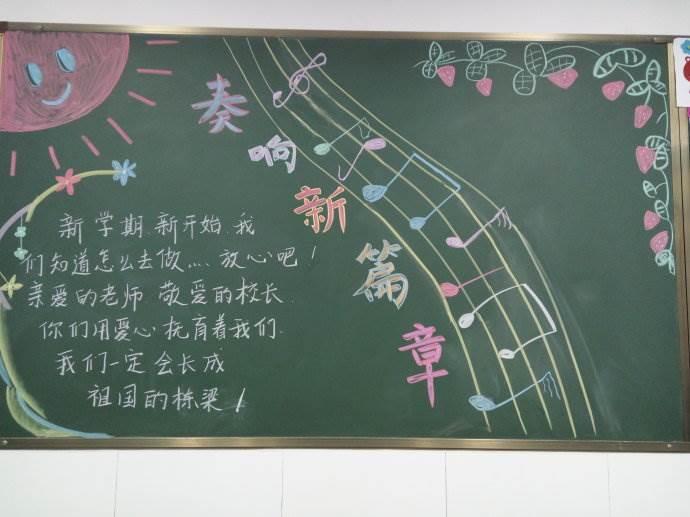 奏响新篇章
新学期.新开始.我
们知道怎么去做....放心吧！
亲爱的老师 敬爱的校长.
你们用爱心抚育着我们.
我们一定会长成
祖国的栋梁！